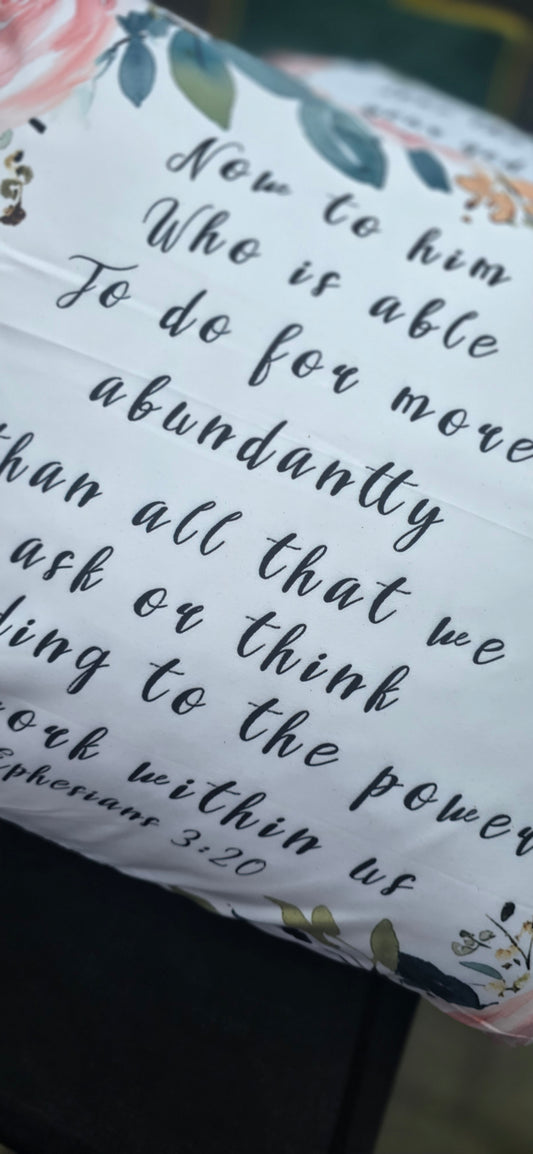 Now to him
Who is able
To do for more
abundantly
than all that we
ask or think
ding to the power
work within us
Ephesians 3:20